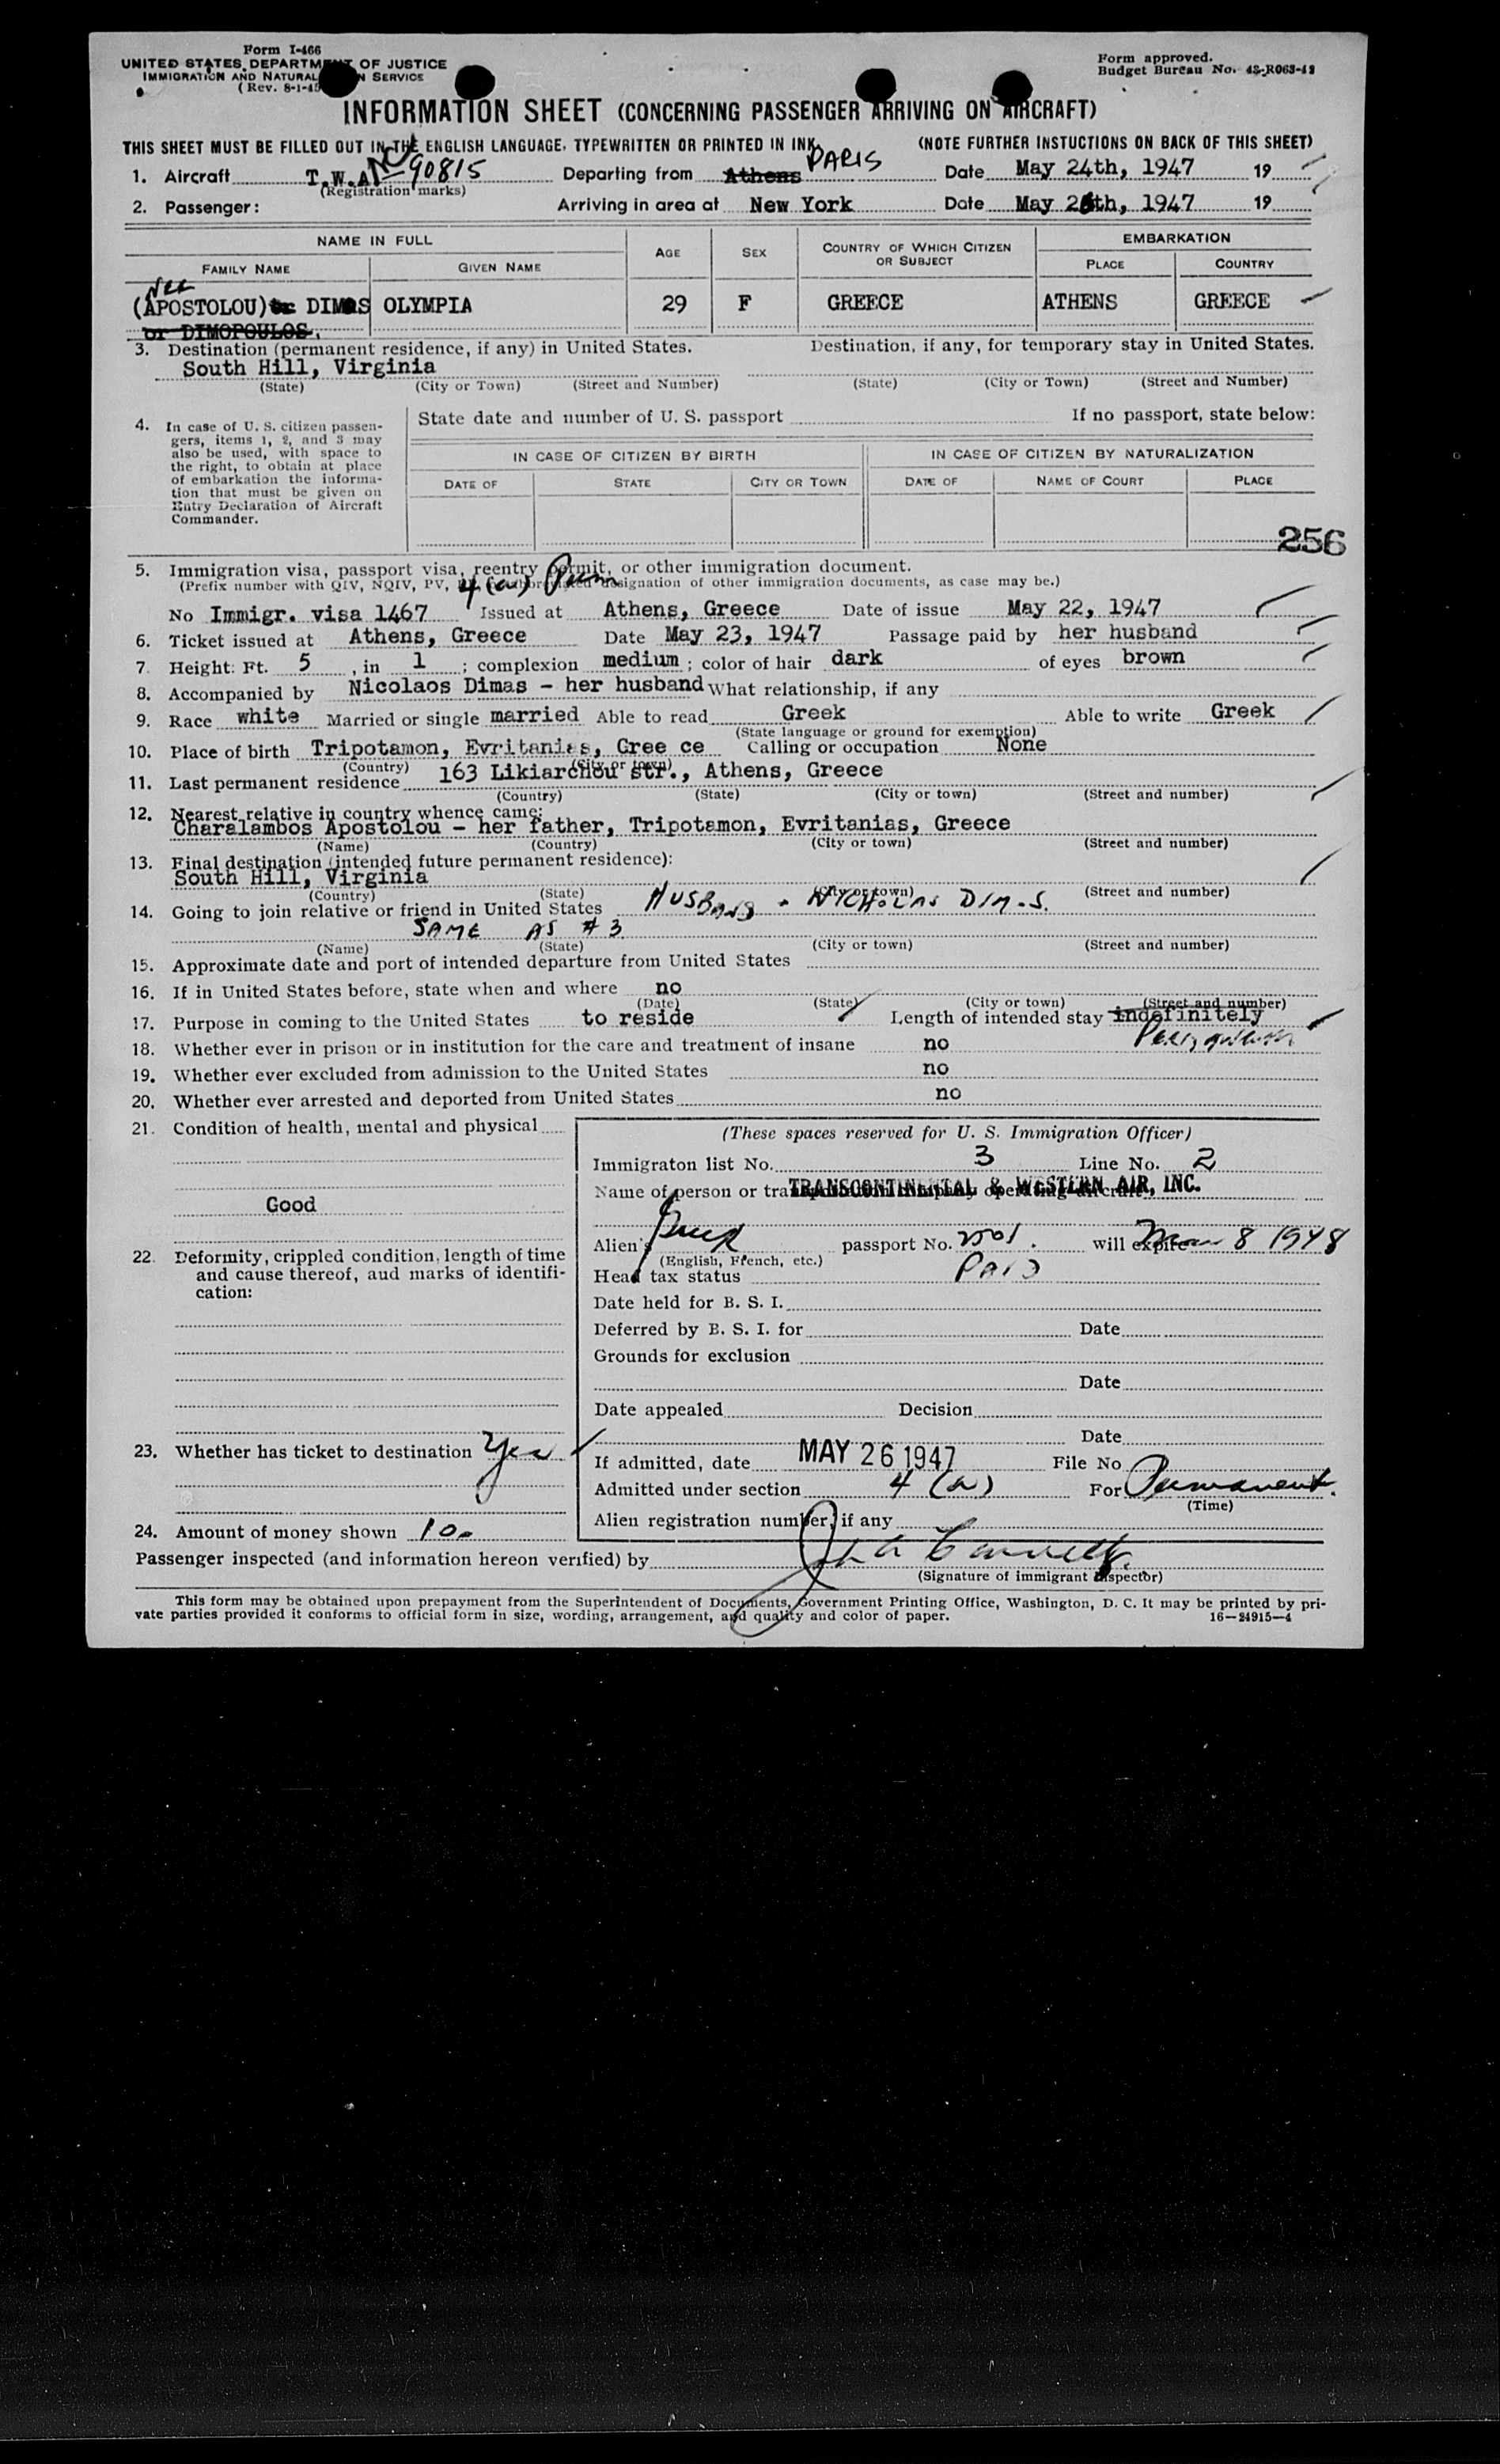 Form I-466
UNITED STATES DEPARTMENT OF JUSTICE
IMMIGRATION AND NATURAL N SERVICE
(Rev. 8-1-45
Form approved.
Budget Bureau No. 43-R063-42
INFORMATION SHEET (CONCERNING PASSENGER ARRIVING ON AIRCRAFT)
THIS SHEET MUST BE FILLED OUT IN THE ENGLISH LANGUAGE, TYPEWRITTEN OR PRINTED IN INK. (NOTE FURTHER INSTUCTIONS ON BACK OF THIS SHEET)
1. Aircraft T.W.A. NC-90815 Departing from Athens PARIS Date May 24th, 1947 19
(Registration marks)
2. Passenger: Arriving in area at New York Date May 26th, 1947 19
NAME IN FULL AGE SEX COUNTRY OF WHICH CITIZEN OR SUBJECT EMBARKATION
FAMILY NAME GIVEN NAME PLACE COUNTRY
Nee
(APOSTOLOU) or DIMAS OLYMPIA 29 F GREECE ATHENS GREECE
or DIMOPOULOS.
3. Destination (permanent residence, if any) in United States. Destination, if any, for temporary stay in United States.
South Hill, Virginia
(State) (City or Town) (Street and Number) (State) (City or Town) (Street and Number)
4. In case of U. S. citizen passengers, items 1, 2, and 3 may also be used, with space to the right, to obtain at place of embarkation the information that must be given on Entry Declaration of Aircraft Commander.
State date and number of U. S. passport If no passport, state below:
IN CASE OF CITIZEN BY BIRTH IN CASE OF CITIZEN BY NATURALIZATION
DATE OF STATE CITY OR TOWN DATE OF NAME OF COURT PLACE
256
5. Immigration visa, passport visa, reentry permit, or other immigration document.
(Prefix number with QIV, NQIV, PV, designation of other immigration documents, as case may be.)
4 (a) Perm
No Immigr. visa 1467 Issued at Athens, Greece Date of issue May 22, 1947
6. Ticket issued at Athens, Greece Date May 23, 1947 Passage paid by her husband
7. Height: Ft. 5, in 1; complexion medium; color of hair dark of eyes brown
8. Accompanied by Nicolaos Dimas - her husband What relationship, if any
9. Race white Married or single married Able to read Greek Able to write Greek
(State language or ground for exemption)
10. Place of birth Tripotamon, Evritanias, Gree ce Calling or occupation None
(Country) (City or town)
11. Last permanent residence 163 Likiarchou str., Athens, Greece
(Country) (State) (City or town) (Street and number)
12. Nearest relative in country whence came:
Charalambos Apostolou - her father, Tripotamon, Evritanias, Greece
(Name) (Country) (City or town) (Street and number)
13. Final destination (intended future permanent residence):
South Hill, Virginia
(Country) (State) (City or town) (Street and number)
14. Going to join relative or friend in United States HUSBAND - NICHOLAS DIMAS.
SAME AS # 3
(Name) (State) (City or town) (Street and number)
15. Approximate date and port of intended departure from United States
16. If in United States before, state when and where no
(Date) (State) (City or town) (Street and number)
17. Purpose in coming to the United States to reside Length of intended stay indefinitely
Permanent
18. Whether ever in prison or in institution for the care and treatment of insane no
19. Whether ever excluded from admission to the United States no
20. Whether ever arrested and deported from United States no
21. Condition of health, mental and physical
Good
22. Deformity, crippled condition, length of time and cause thereof, aud marks of identification:
23. Whether has ticket to destination Yes
24. Amount of money shown 10
(These spaces reserved for U. S. Immigration Officer)
Immigraton list No. 3 Line No. 2
Name of person or TRANSCONTINENTAL & WESTERN AIR, INC.
Alien's Greek passport No. 2501. will expire Mar 8 1948
(English, French, etc.)
Head tax status PAID
Date held for B. S. I.
Deferred by B. S. I. for Date
Grounds for exclusion
Date
Date appealed Decision
Date
If admitted, date MAY 26 1947 File No
Admitted under section 4 (a) For Permanent.
(Time)
Alien registration number, if any
Passenger inspected (and information hereon verified) by
(Signature of immigrant inspector)
This form may be obtained upon prepayment from the Superintendent of Documents, Government Printing Office, Washington, D. C. It may be printed by pri-
vate parties provided it conforms to official form in size, wording, arrangement, and quality and color of paper. 16—24915—4